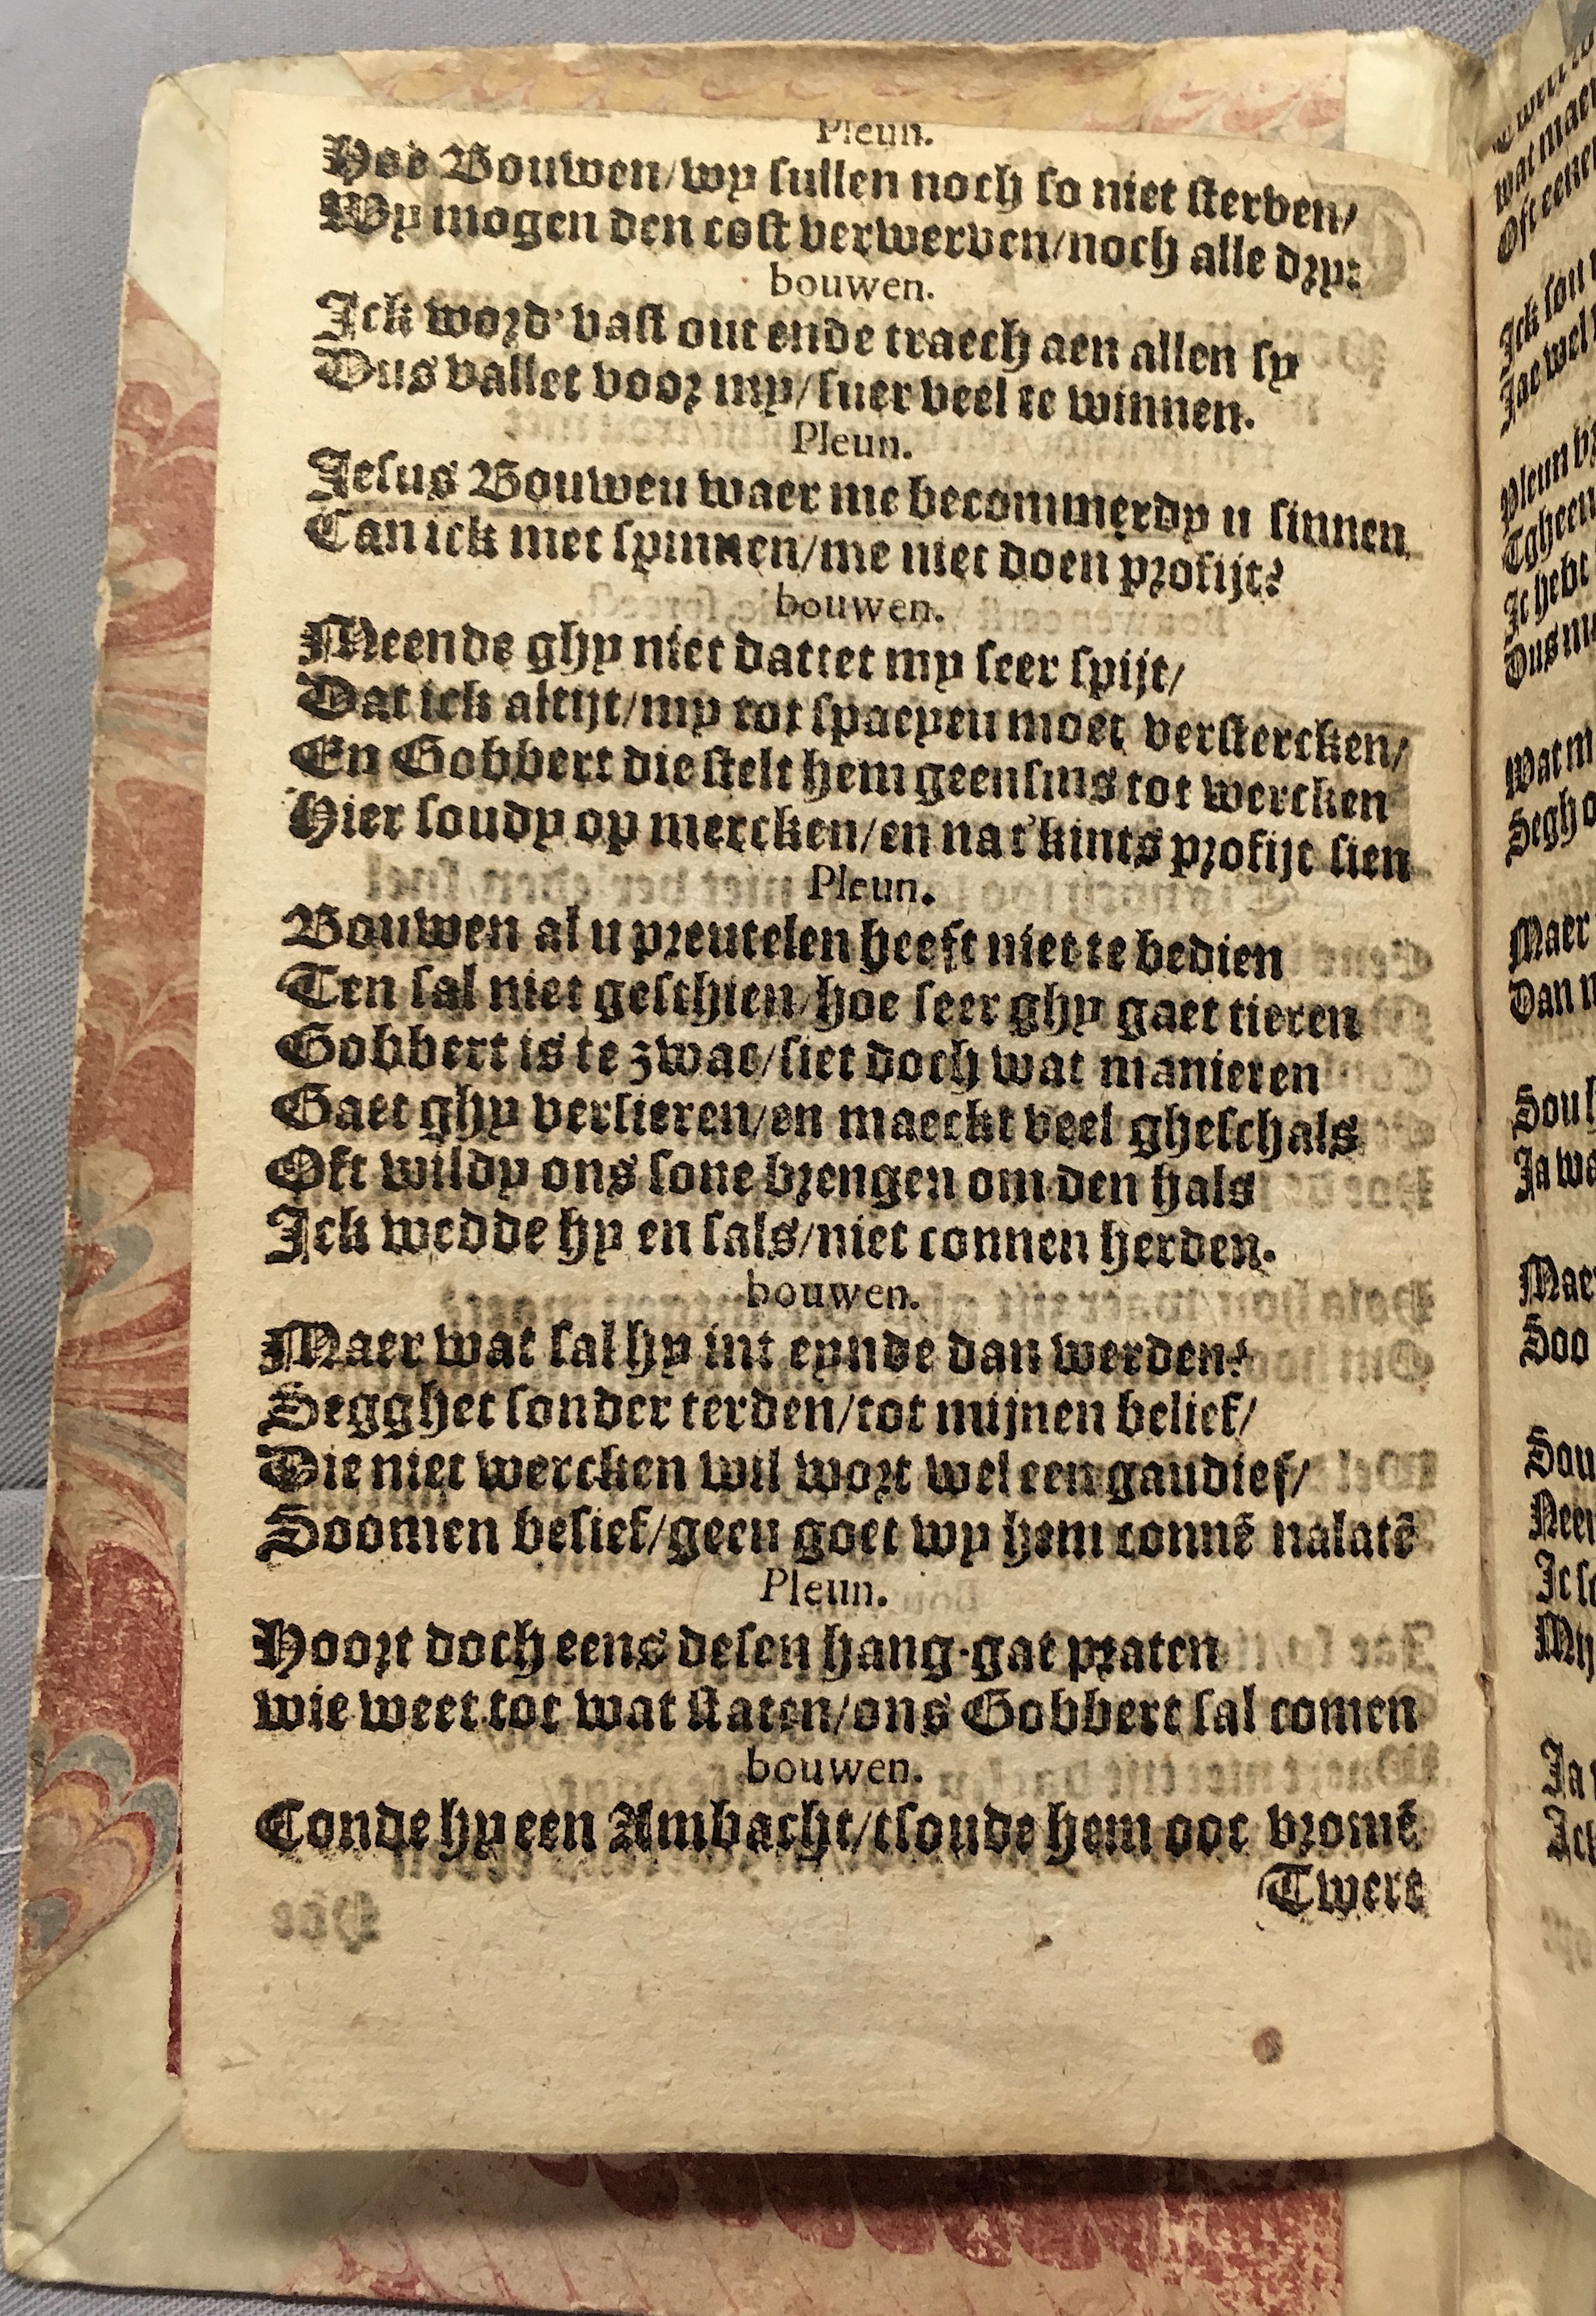 Pleun.
Hoe Bouwen/wy sullen noch so niet sterven/
Wy mogen den cost verwerven/noch alle dry:
bouwen.
Ick word' vast out ende traech aen allen sy
Dus vallet voor my/suer veel te winnen.
Pleun.
Jesus Bouwen waer me becommerdy u sinnen
Can ick met spinnen/me niet doen profijt?
bouwen.
Meende ghy niet dattet my seer spijt/
Dat ick altijt/my tot spaeyen moet verstercken/
En Gobbert die stelt hem geensins tot wercken
Hier soudy op mercken/en na t'kints profijt sien
Pleun.
Bouwen al u preutelen heeft niet te bedien
Ten sal niet geschien/hoe seer ghy gaet tieren
Gobbert is te zwac/siet doch wat manieren
Gaet ghy versieren/en maeckt veel gheschals
Oft wildy ons sone brengen om den hals
Ick wedde hy en sals/niet connen herden.
bouwen.
Maer wat sal hy int eynde dan werden?
Segghet sonder terden/tot mijnen belief/
Die niet wercken wil wort wel een gaudief/
Soomen besief/geen goet wy hem connē nalatē
Pleun.
Hoort doch eens desen hang-gat praten
wie weet tot wat staten/ons Gobbert sal comen
bouwen.
Conde hy een Ambacht/tsoude hem ooc vromē
Twere